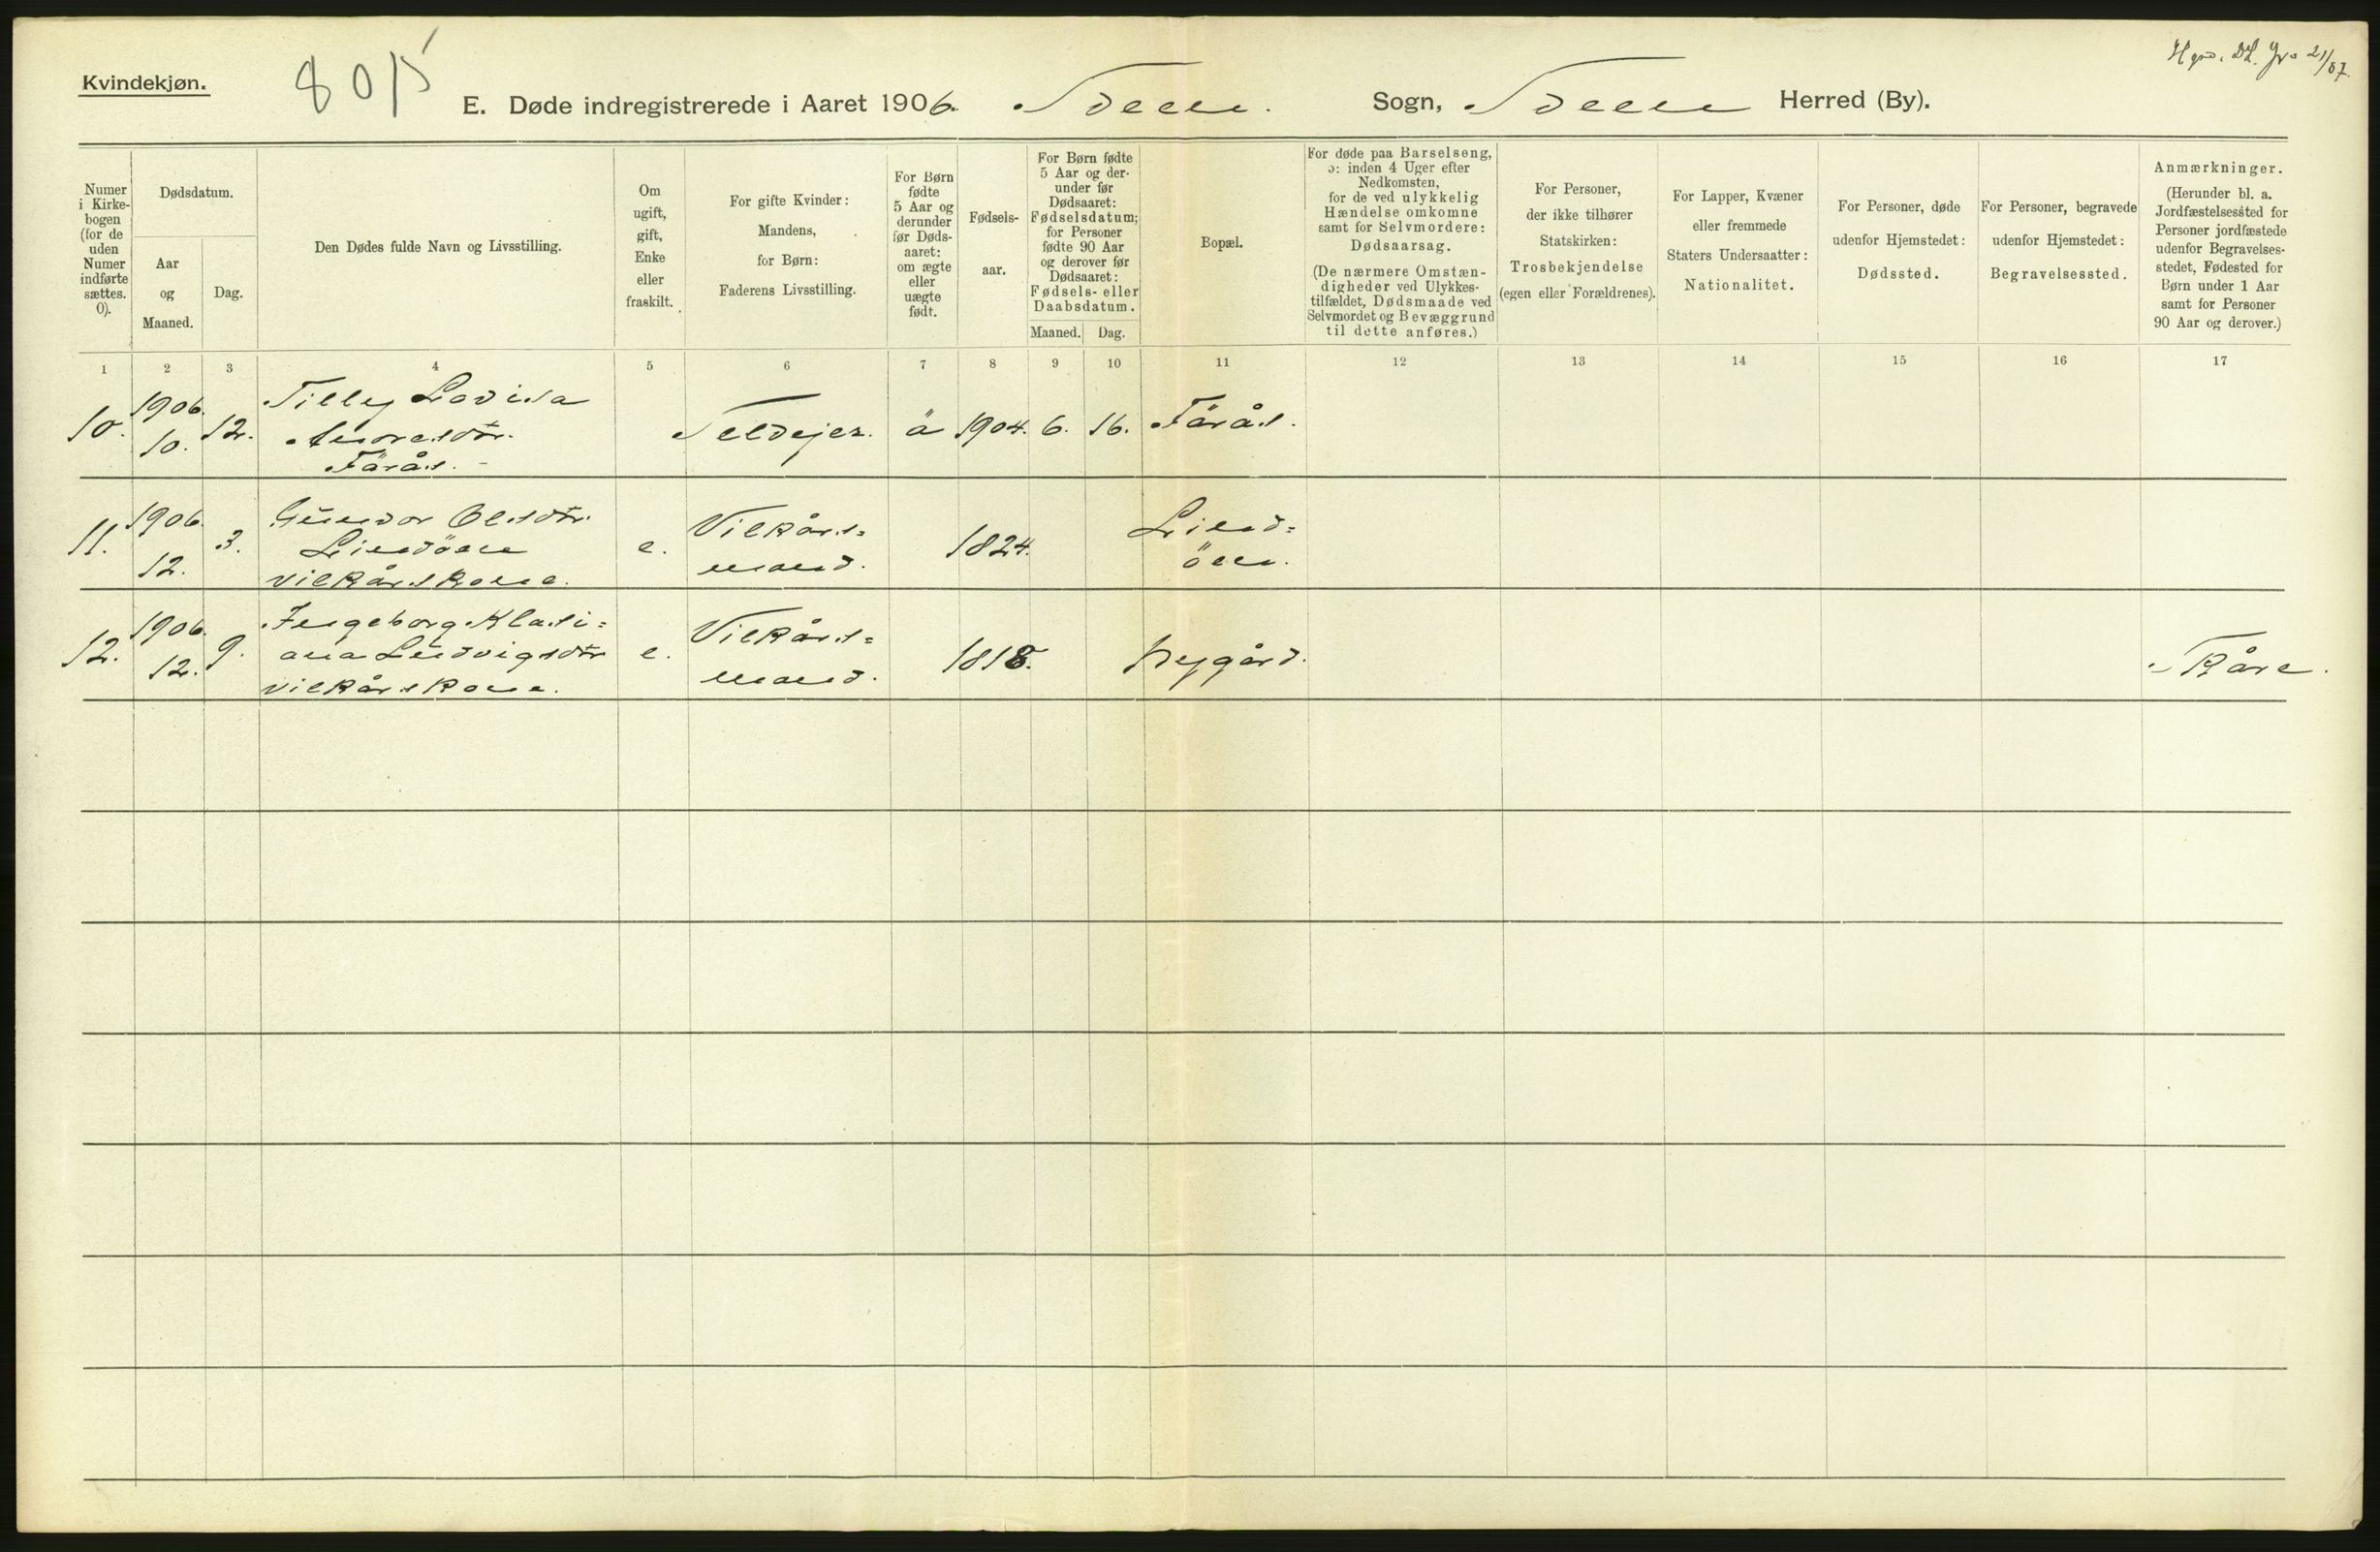 Kvindekjøn.
8015
E. Døde indregistrerede i Aaret 1906. Sogn, Herred (By).
21/07.
Numer i Kirke-bogen (for de uden Numer indførte sættes. 0).
Dødsdatum.
Aar og Maaned.
Dag.
Den Dødes fulde Navn og Livsstilling.
Om ugift, gift, Enke eller fraskilt.
For gifte Kvinder: Mandens, for Børn: Faderens Livsstilling.
For Børn fødte 5 Aar og derunder før Døds-aaret: om ægte eller uægte født.
Fødsels-aar.
For Børn fødte 5 Aar og der-under før Dødsaaret: Fødselsdatum; for Personer fødte 90 Aar og derover før Dødsaaret: Fødsels- eller Daabsdatum.
Maaned. Dag.
Bopæl.
For døde paa Barselseng, ɔ: inden 4 Uger efter Nedkomsten, for de ved ulykkelig Hændelse omkomne samt for Selvmordere: Dødsaarsag.
(De nærmere Omstæn-digheder ved Ulykkes-tilfældet, Dødsmaade ved Selvmordet og Bevæggrund til dette anføres.)
For Personer, der ikke tilhører Statskirken: Trosbekjendelse (egen eller Forældrenes).
For Lapper, Kvæner eller fremmede Staters Undersaatter: Nationalitet.
For Personer, døde udenfor Hjemstedet: Dødssted.
For Personer, begravede udenfor Hjemstedet: Begravelsessted.
Anmærkninger.
(Herunder bl. a. Jordfæstelsessted for Personer jordfæstede udenfor Begravelses-stedet, Fødested for Børn under 1 Aar samt for Personer 90 Aar og derover.)
1 2 3 4 5 6 7 8 9 10 11 12 13 14 15 16 17
10. 1906. 10. 12. Tilley Lovisa
Färås. ä 1904. 6. 16. Färås.
11. 1906. 12. 3. Gunvor Olsdtr.
Lindöen
vilkårskone. e. Vilkårs=
mand. 1824. Lind=
öen.
12. 1906. 12. 9. Ingeborg Klasi=
ana Ludvigsdtr
vilkårskone. e. Vilkårs=
mand. 1818. Nygård. Skåre.